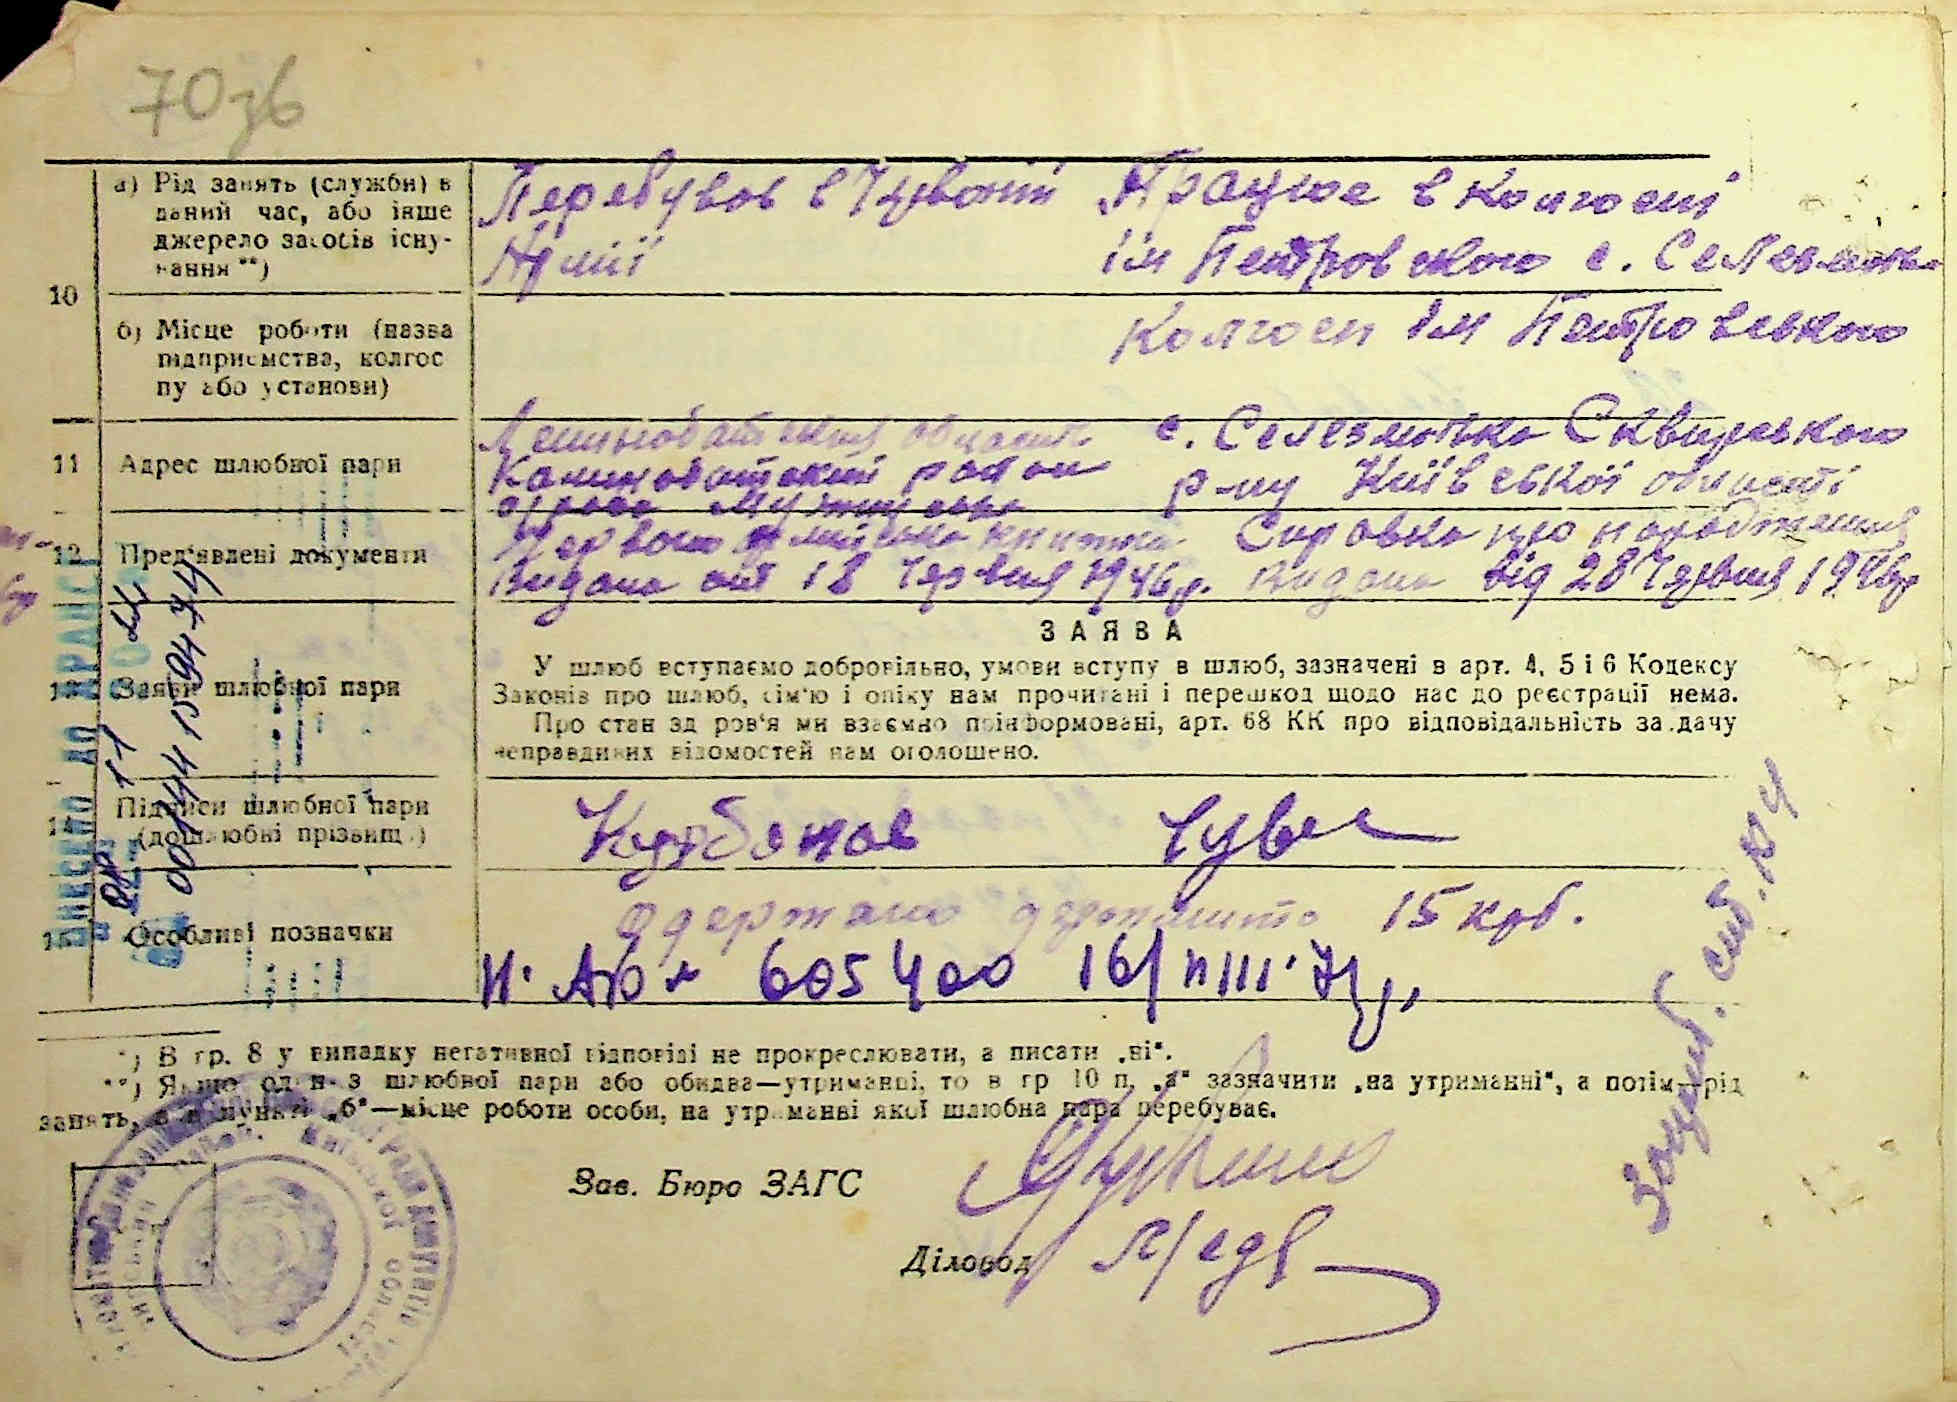 70зб
10
а) Рід занять (служби) в
даний час, або інше
джерело засобів існу-
вання **)
Перебував в Червоній
Армії
Працює в колгоспі
ім Петровського с. Селезнівка
б) Місце роботи (назва
підприємства, колгос
пу або установи)
Колгосп ім Петровського
11
Адрес шлюбної пари
район
с. Селезнівка Сквирського
р-ну Київської області
12
Пред'явлені документи
Видана від 18 Червня 1946р.
Справка про народження
Видана від 28 Червня 1946р
ЗАЯВА
13
Заяви шлюбної пари
У шлюб вступаємо добровільно, умови вступу в шлюб, зазначені в арт. 4, 5 і 6 Кодексу
Законів про шлюб, сім'ю і опіку нам прочитані і перешкод щодо нас до реєстрації нема.
Про стан здоров'я ми взаємно поінформовані, арт. 68 КК про відповідальність за дачу
неправдивих відомостей нам оголошено.
14
Підписи шлюбної пари
(дошлюбні прізвищ.)
15
Особливі позначки
Одержано держмито 15 крб.
605400 16/VIII.
*) В гр. 8 у випадку негативної відповіді не прокреслювати, а писати „ні".
**) Якщо один з шлюбної пари або обидва—утриманці, то в гр 10 п. „а" зазначити „на утриманні", а потім—рід
занять, а в пункті „б"—місце роботи особи, на утриманні якої шлюбна пара перебуває.
Зав. Бюро ЗАГС
Діловод
ВНЕСЕНО ДО ДРАЦС
00144159474
Київської області